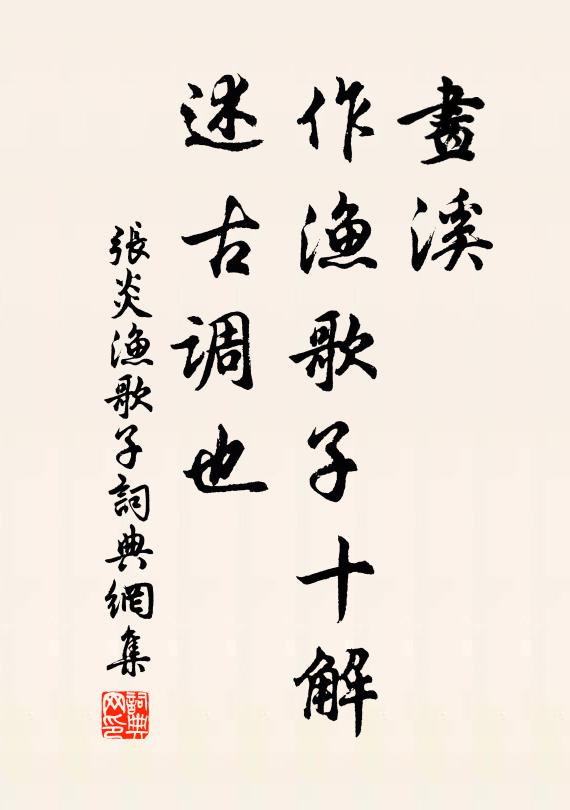 畫溪
作漁歌子十解
述古調也
張炎漁歌子詞典網集
詞典网印